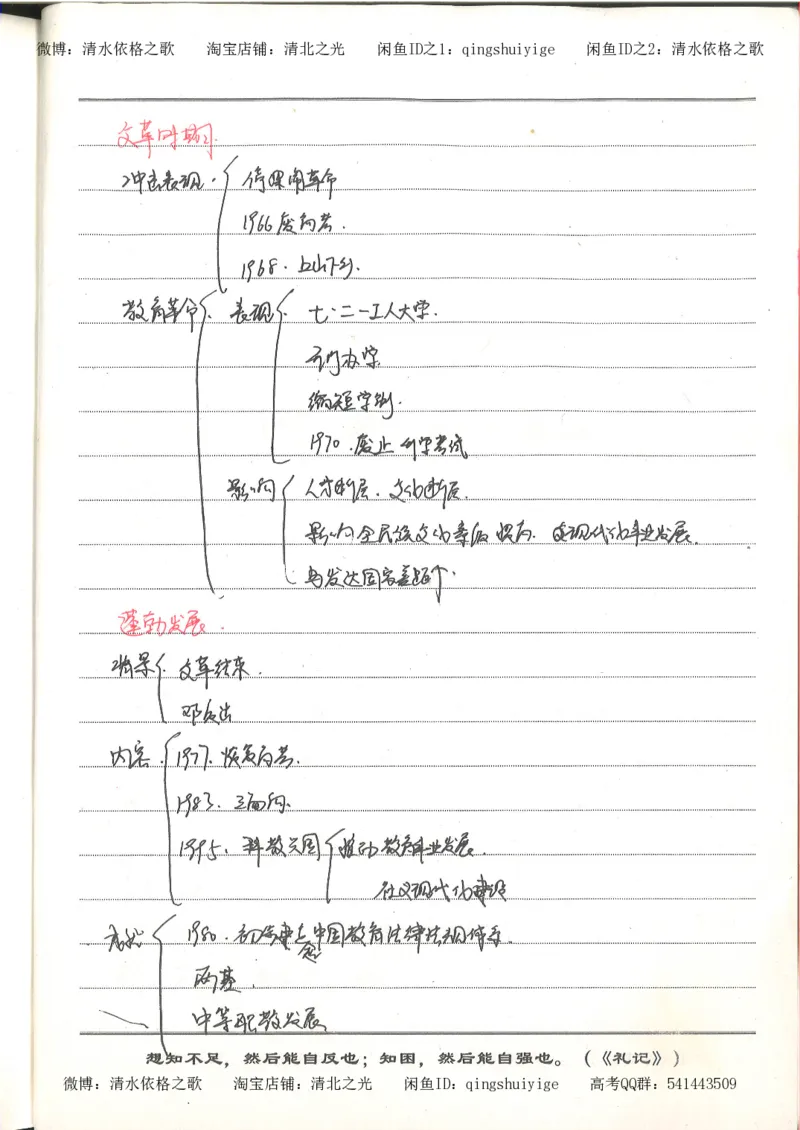 微博：清水依格之歌 淘宝店铺：清北之光 闲鱼ID之1：qingshuiyige 闲鱼ID之2：清水依格之歌
文革时期
冲击表现. 停课闹革命
1966废高考.
1968.上山下乡.
教育革命. 表现. 七·二一工人大学.
开门办学
缩短学制.
1970.废止 升学考试
影响 人才断层.文化断层.
影响全民族文化素质提高. 现代化事业发展.
与发达国家差距个.
蓬勃发展.
背景. 文革结束.
邓复出
内容. 1977.恢复高考.
1983.三面向.
1995.科教兴国 推动教育事业发展.
社义现代化建设
1980.初步建立中国教育法律法规体系.
两基.
中等职教发展
想知不足，然后能自反也；知困，然后能自强也。（《礼记》）
微博：清水依格之歌 淘宝店铺：清北之光 闲鱼ID：qingshuiyige 高考QQ群：541443509